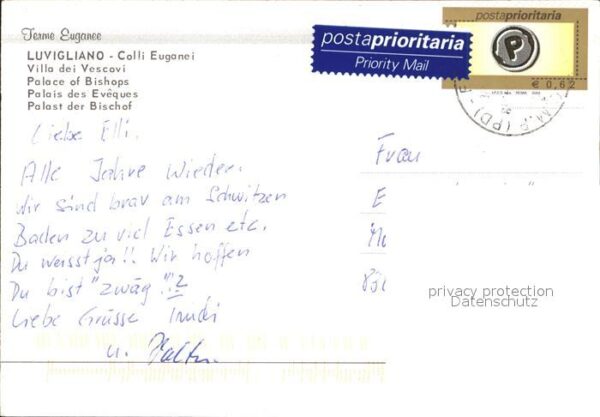 Terme Euganee
LUVIGLIANO - Colli Euganei
Villa dei Vescovi
Palace of Bishops
Palais des Evêques
Palast der Bischof
postaprioritaria
Priority Mail
postaprioritaria
P
€ 0,62
Liebe Elli.
Alle Jahre wieder.
wir sind brav am Schwitzen
Baden zu viel Essen etc.
Du weisst ja!! Wir hoffen
Du bist "zwäg"!?
Liebe Grüsse Trudi
u. Walter
Frau
E
privacy protection
Datenschutz